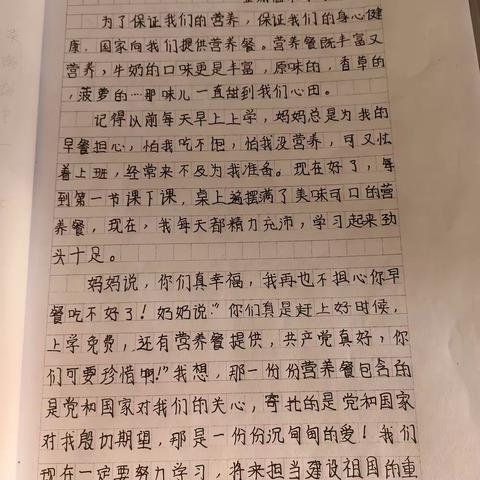 为了保证我们的营养，保证我们的身心健
康，国家向我们提供营养餐。营养餐既丰富又
营养，牛奶的口味更是丰富，原味的，香草的
，菠萝的…那味儿一直甜到我们心田。
记得以前每天早上上学，妈妈总是为我的
早餐担心，怕我吃不饱，怕我没营养，可又忙
着上班，经常来不及为我准备。现在好了，每
到第一节课下课，桌上遍摆满了美味可口的营
养餐，现在，我每天都精力充沛，学习起来劲
头十足。
妈妈说，你们真幸福，我再也不担心你早
餐吃不好了！奶奶说："你们真是赶上好时候，
上学免费，还有营养餐提供，共产党真好，你
们可要珍惜啊！"我想，那一份份营养餐包含的
是党和国家对我们的关心，寄托的是党和国家
对我殷切期望，那是一份份沉甸甸的爱！我们
现在一定要努力学习，将来担当建设祖国的重